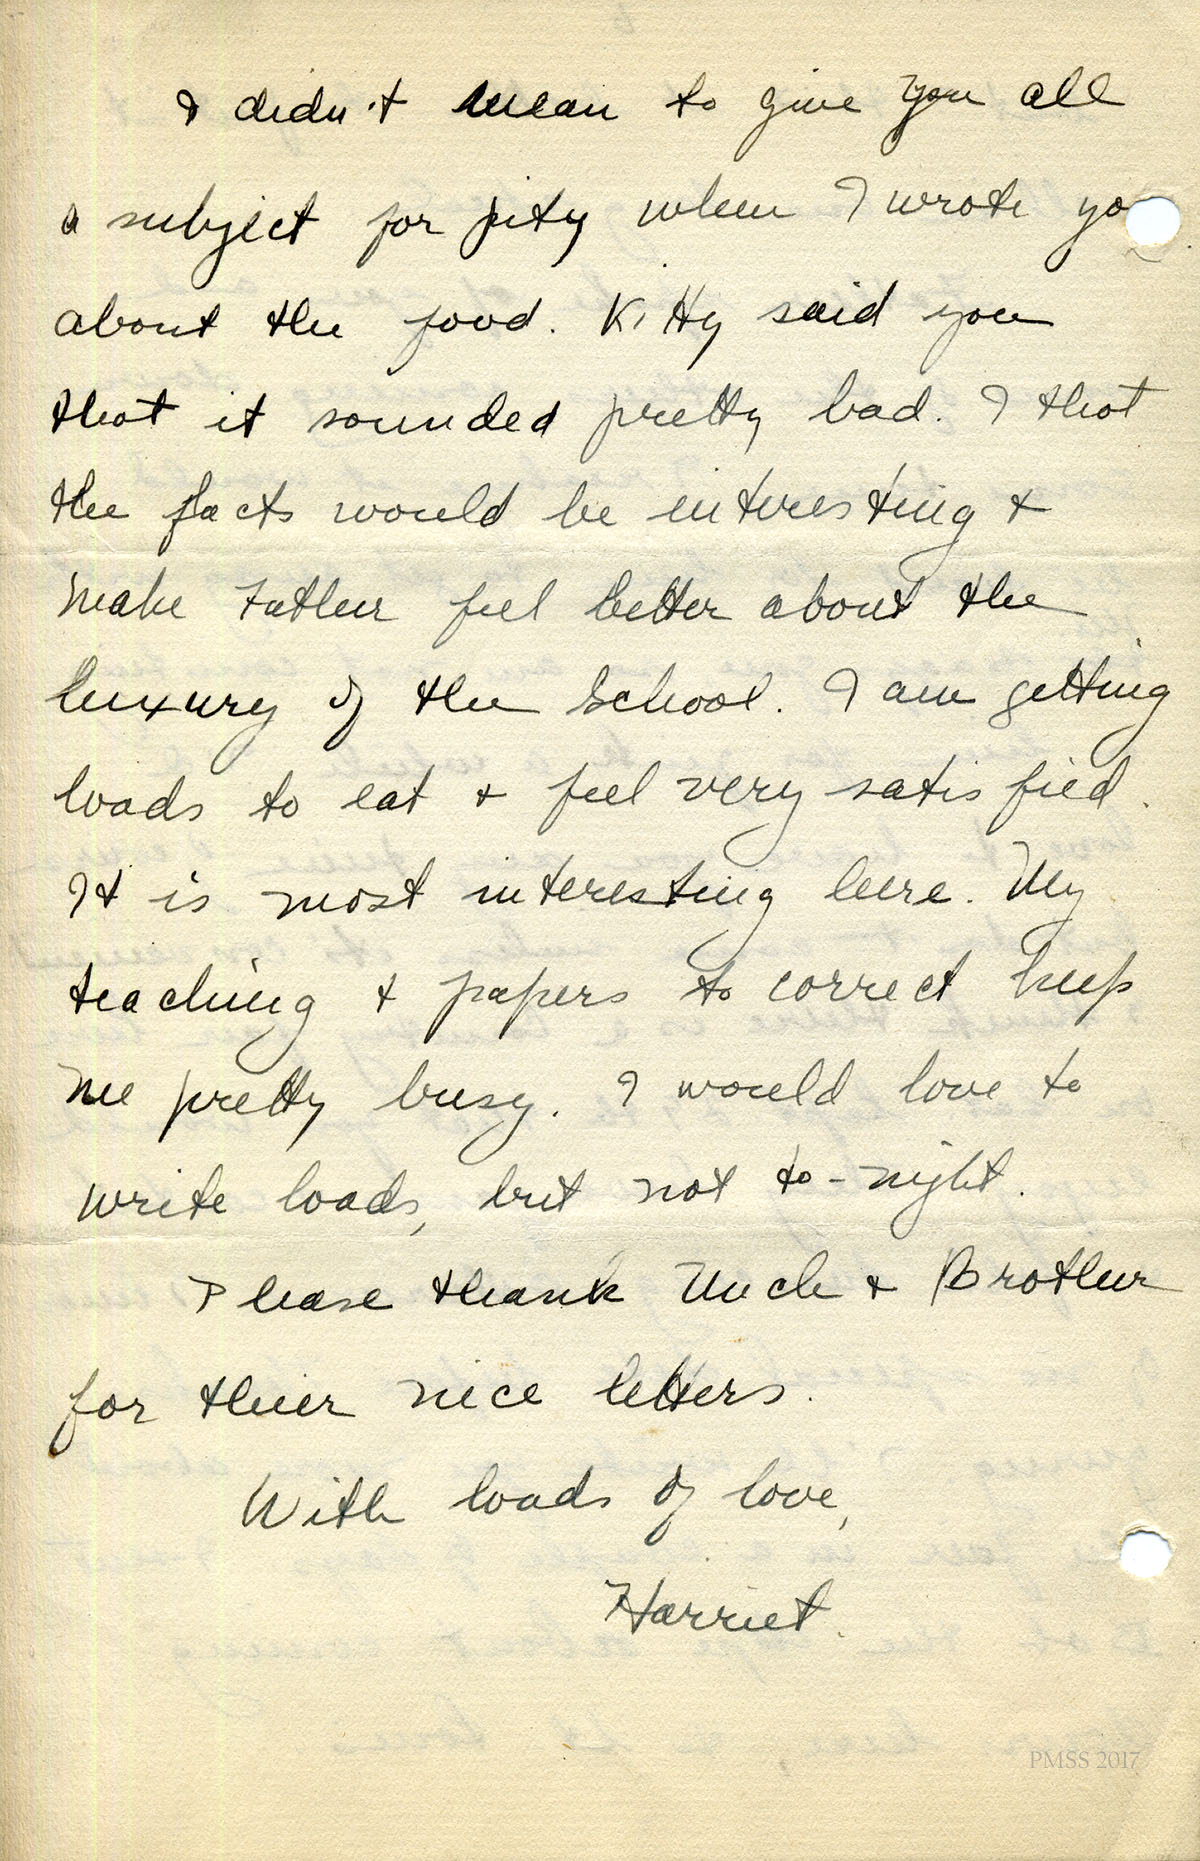 I didn't mean to give you all
a subject for pity when I wrote yo
about the food. Kitty said you
thot it sounded pretty bad. I thot
the facts would be interesting +
make Father feel better about the
luxury of the School. I am getting
loads to eat + feel very satisfied.
It is most interesting here. My
teaching + papers to correct keep
me pretty busy. I would love to
write loads, but not to-night.
Please thank Uncle + Brother
for thier nice letters.
With loads of love,
Harriet.
PMSS 2017